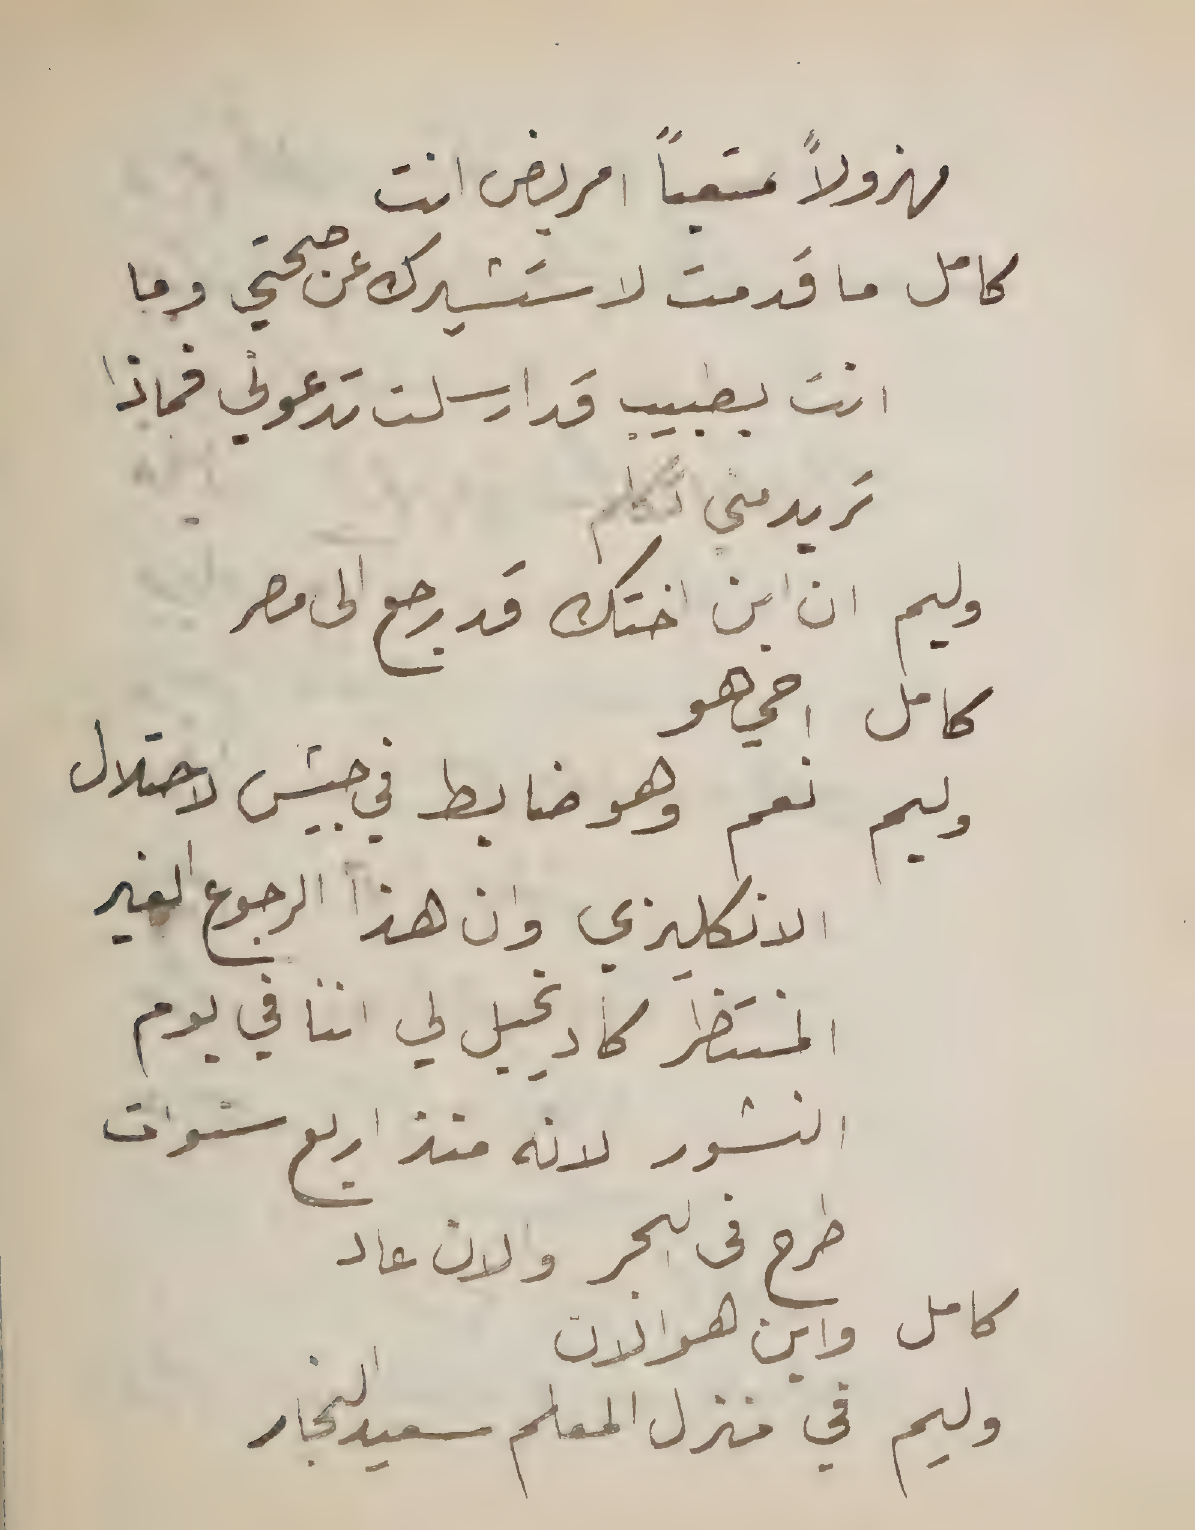 مهزولاً متعباً امريض انت
كامل ما قدمت لا ستشيرك عن صحتي وما
انت بطبيب قد ارسلت تدعوني فماذا
تريد مني تكلم
وليم ان ابن اختك قد رجع الى مصر
كامل احي هو
وليم نعم وهو ضابط في جيش لاحتلال
الانكليزي وان هذا الرجوع الغير
المنتظر كاد يخيل لي اننا في يوم
النشور لانه منذ اربع سنوات
طرح في البحر والان عاد
كامل واين هو الان
وليم في منزل المعلم سعيد النجار